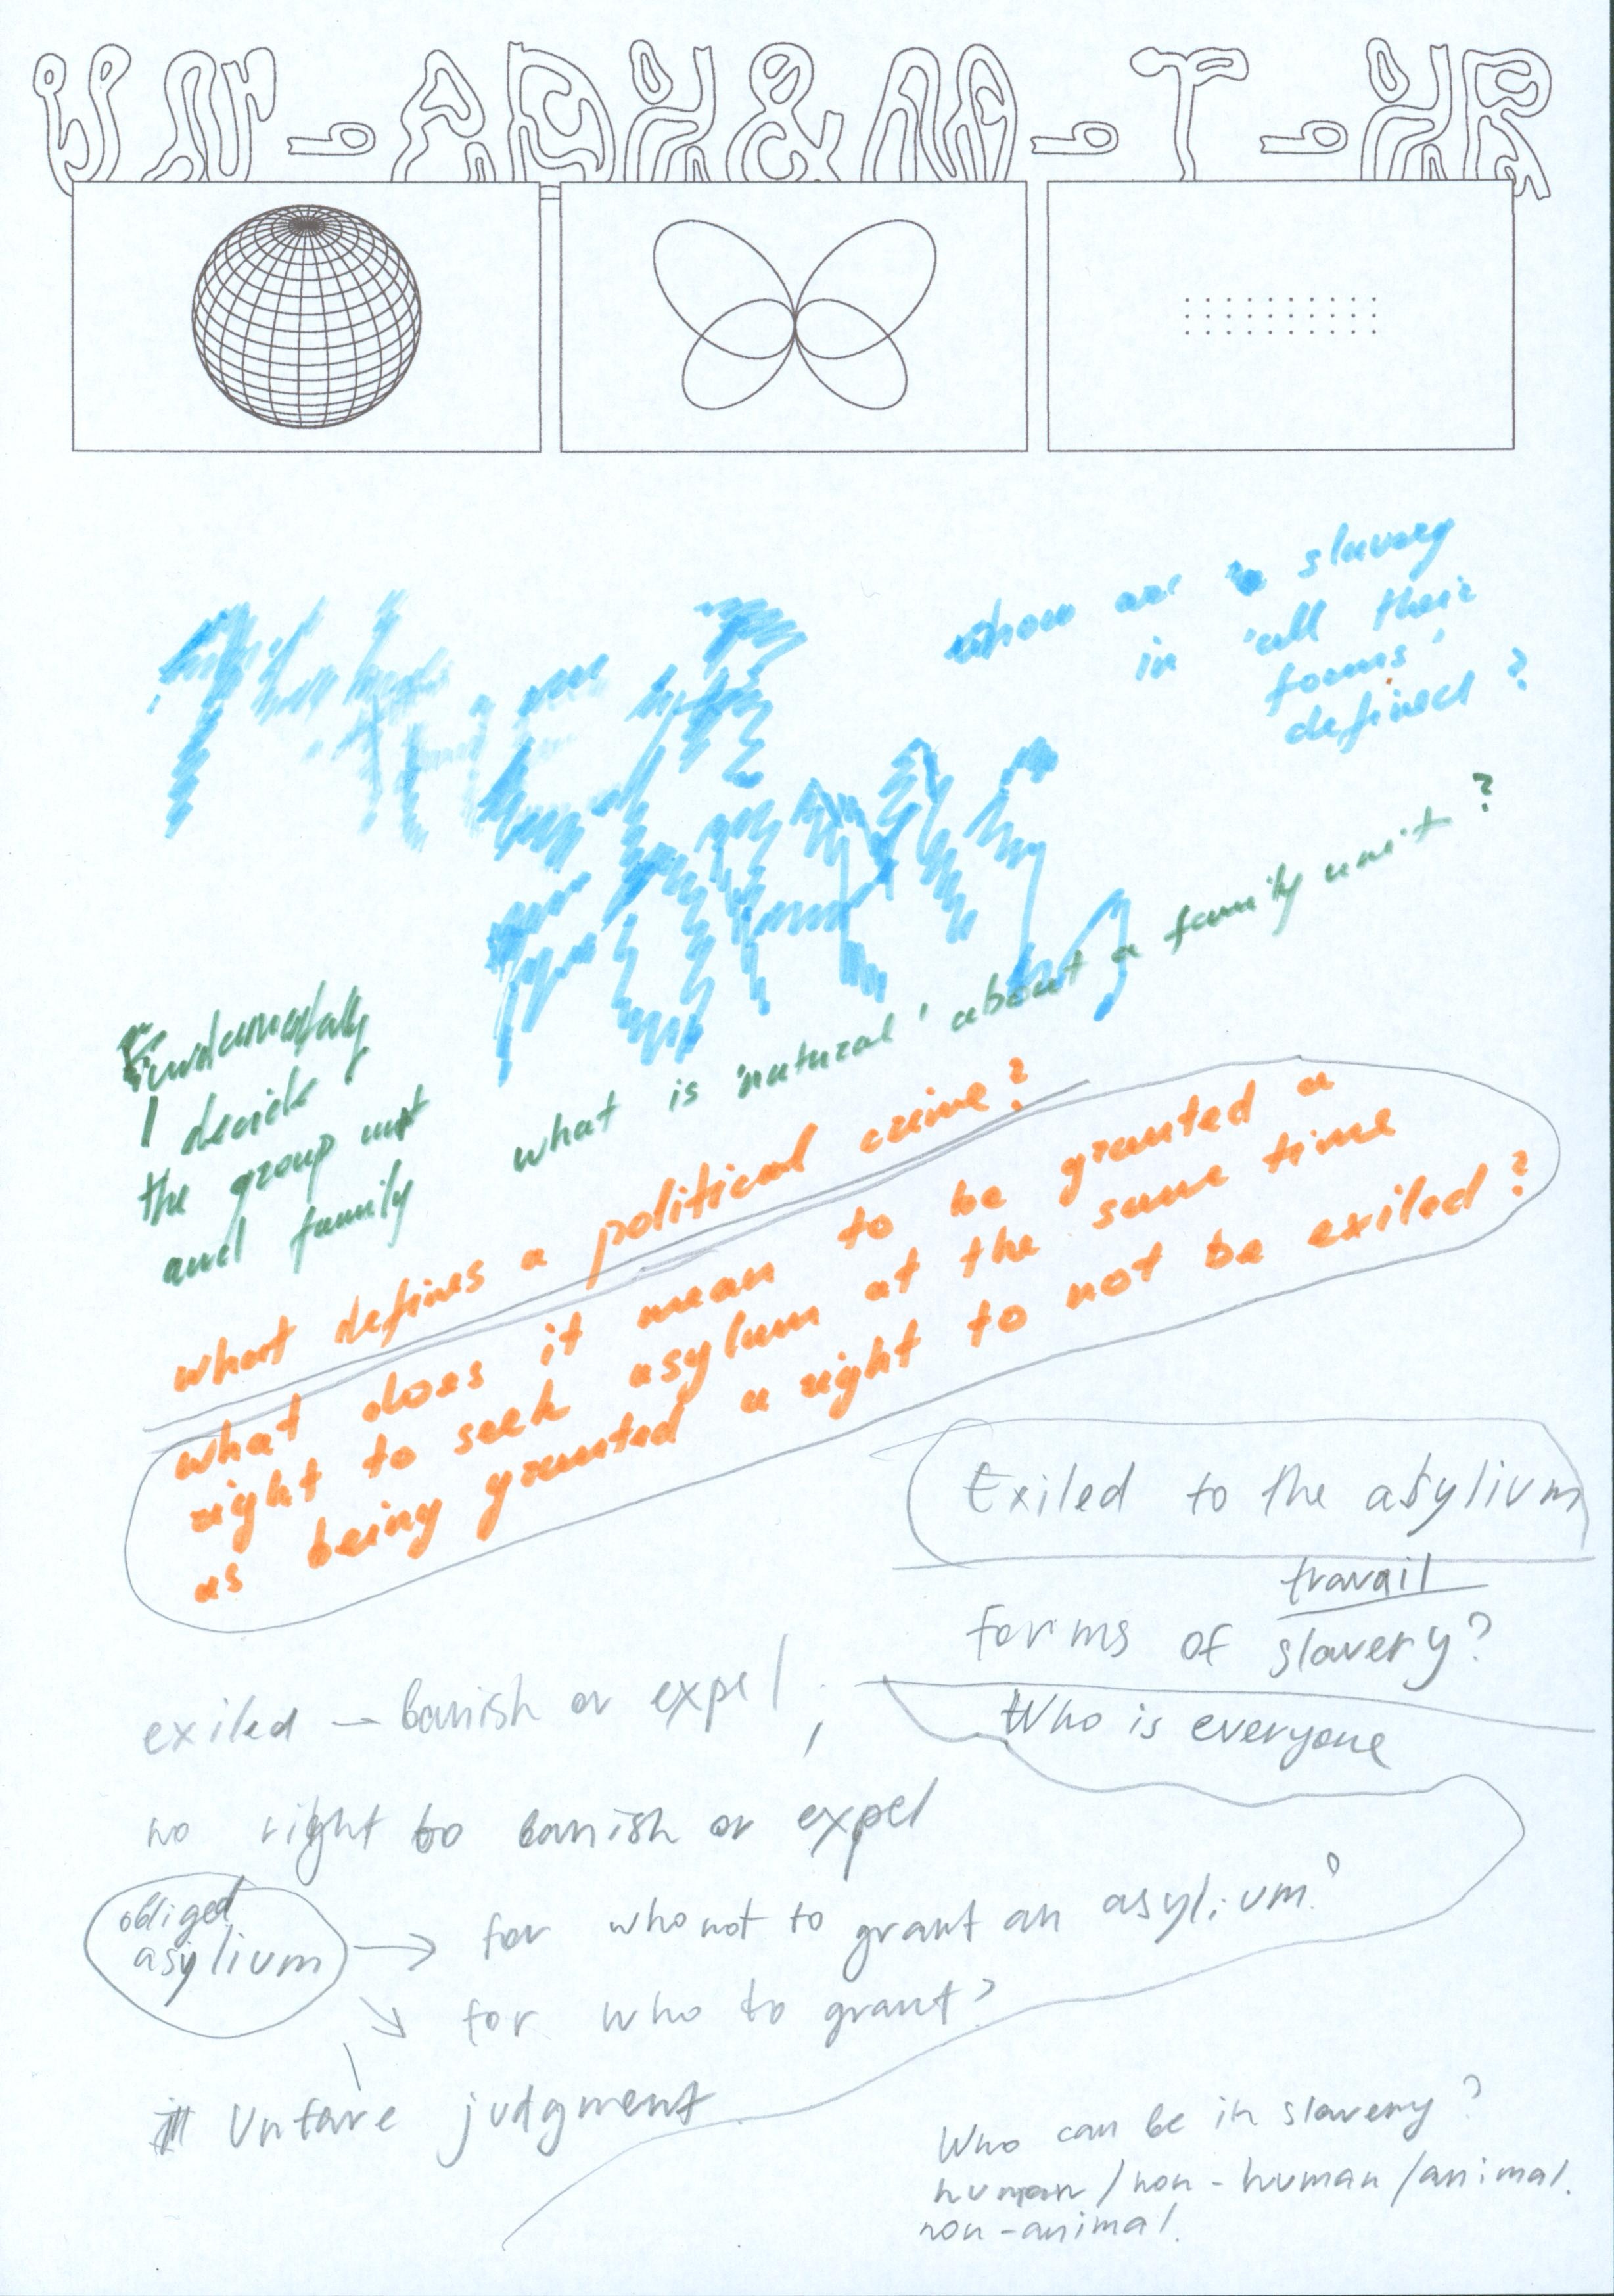 how are slavery
in 'all their
forms'
defined?
THEIR
FORMS
what is 'natural' about a family unit?
Fundamentally
I decide
the group unit
and family
what defines a political crime?
what does it mean to be granted a
right to seek asylum at the same time
as being granted a right to not be exiled?
Exiled to the asylium
travail
forms of slavery?
Who is everyone
exiled — banish or expel
no right to banish or expel
obliged
asylium
for who not to grant an asylium?
for who to grant?
Unfare judgment
Who can be in slavery?
human / non-human / animal.
non-animal.